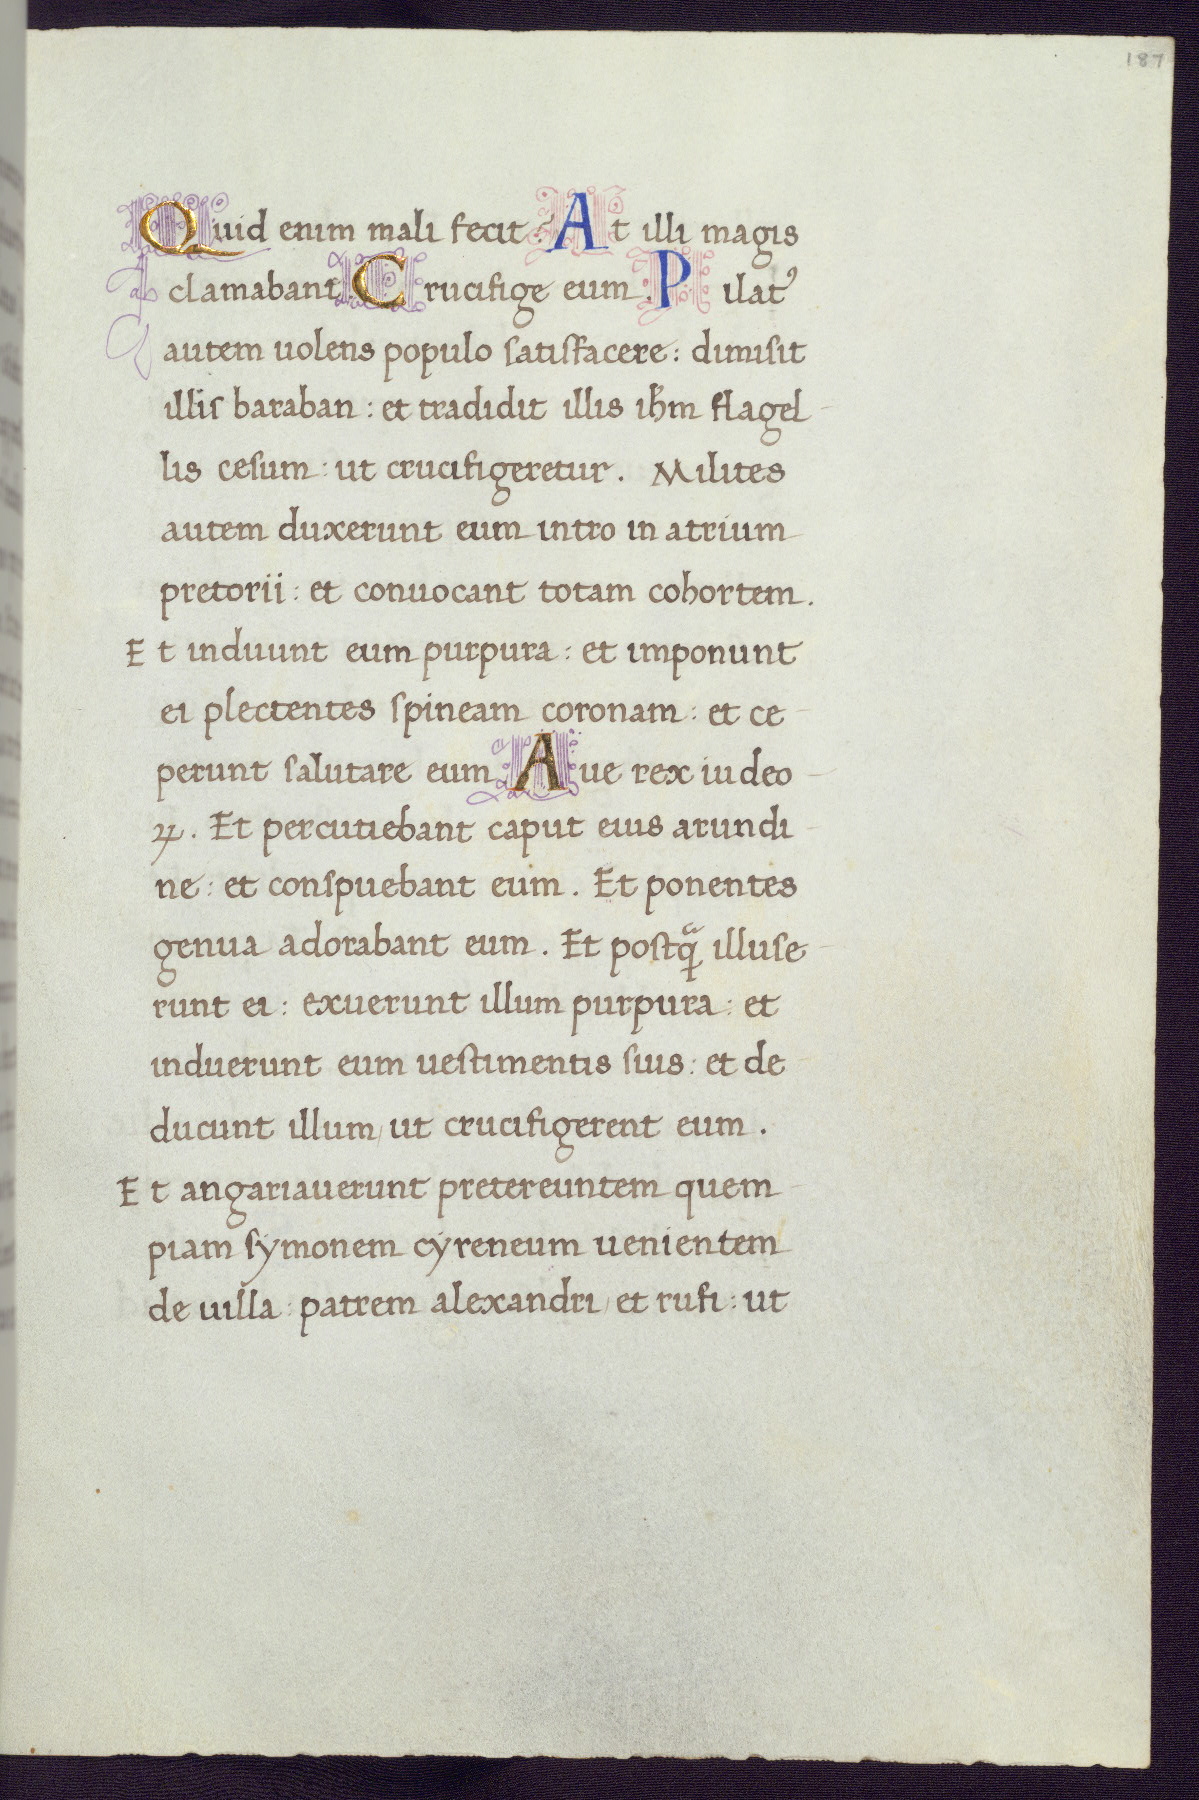 187
Quid enim mali fecit? At illi magis
clamabant Crucifige eum. Pilatꝰ
autem uolens populo satisfacere: dimisit
illis baraban: et tradidit illis ihm̄ flagel
lis cesum: ut crucifigeretur. Milites
autem duxerunt eum intro in atrium
pretorii: et conuocant totam cohortem.
Et induunt eum purpura: et imponunt
ei plectentes spineam coronam: et ce
perunt salutare eum. Aue rex iudeo
ꝝ. Et percutiebant caput eius arundi
ne: et conspuebant eum. Et ponentes
genua adorabant eum. Et postqᷓ illuse
runt ei: exuerunt illum purpura: et
induerunt eum uestimentis suis: et de
ducunt illum, ut crucifigerent eum.
Et angariauerunt pretereuntem quem
piam symonem cyreneum uenientem
de uilla: patrem alexandri, et rufi: ut